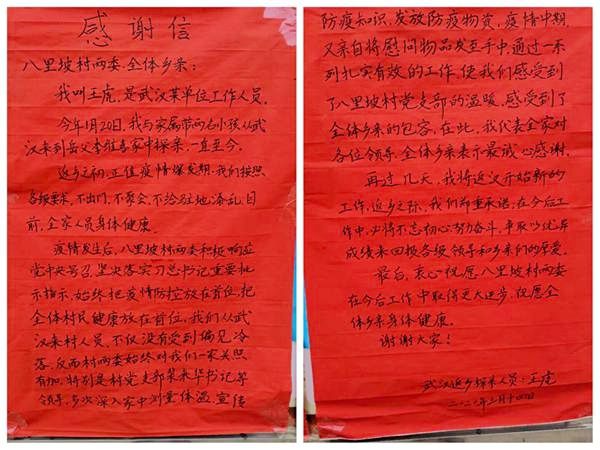 感谢信
八里坡村两委、全体乡亲:
我叫王虎,是武汉某单位工作人员。
今年1月20日,我与家属带两名小孩从武
汉来到岳父李维春家中探亲,一直至今。
返乡之初,正值疫情爆发期,我们按照
各级要求,不出门、不聚会、不给驻地添乱,目
前,全家人员身体健康。
疫情发生后,八里坡村两委积极响应
党中央号召,坚决落实习总书记重要批
示指示,始终把疫情防控放在首位,把
全体村民健康放在首位,我们从武
汉来村人员,不仅没有受到偏见、冷
落,反而村两委始终对我们一家关照
有加,特别是村党支部 书记等
领导,多次深入家中测量体温,宣传
防疫知识,发放防疫物资,疫情中期,
又亲自将慰问物品发至手中,通过一系
列扎实有效的工作,使我们感受到
了八里坡村党支部的温暖,感受到了
全体乡亲的包容,在此,我代表全家对
各位领导、全体乡亲表示最诚心感谢。
再过几天,我将返汉开始新的
工作,返乡之际,我们郑重承诺:在今后工
作中,必将不忘初心,努力奋斗,争取以优异
成绩来回报各级领导和乡亲们的厚爱。
最后,衷心祝愿八里坡村两委
在今后工作中取得更大进步,祝愿全
体乡亲身体健康。
谢谢大家!
武汉返乡探亲人员:王虎
二〇二〇年三月十四日